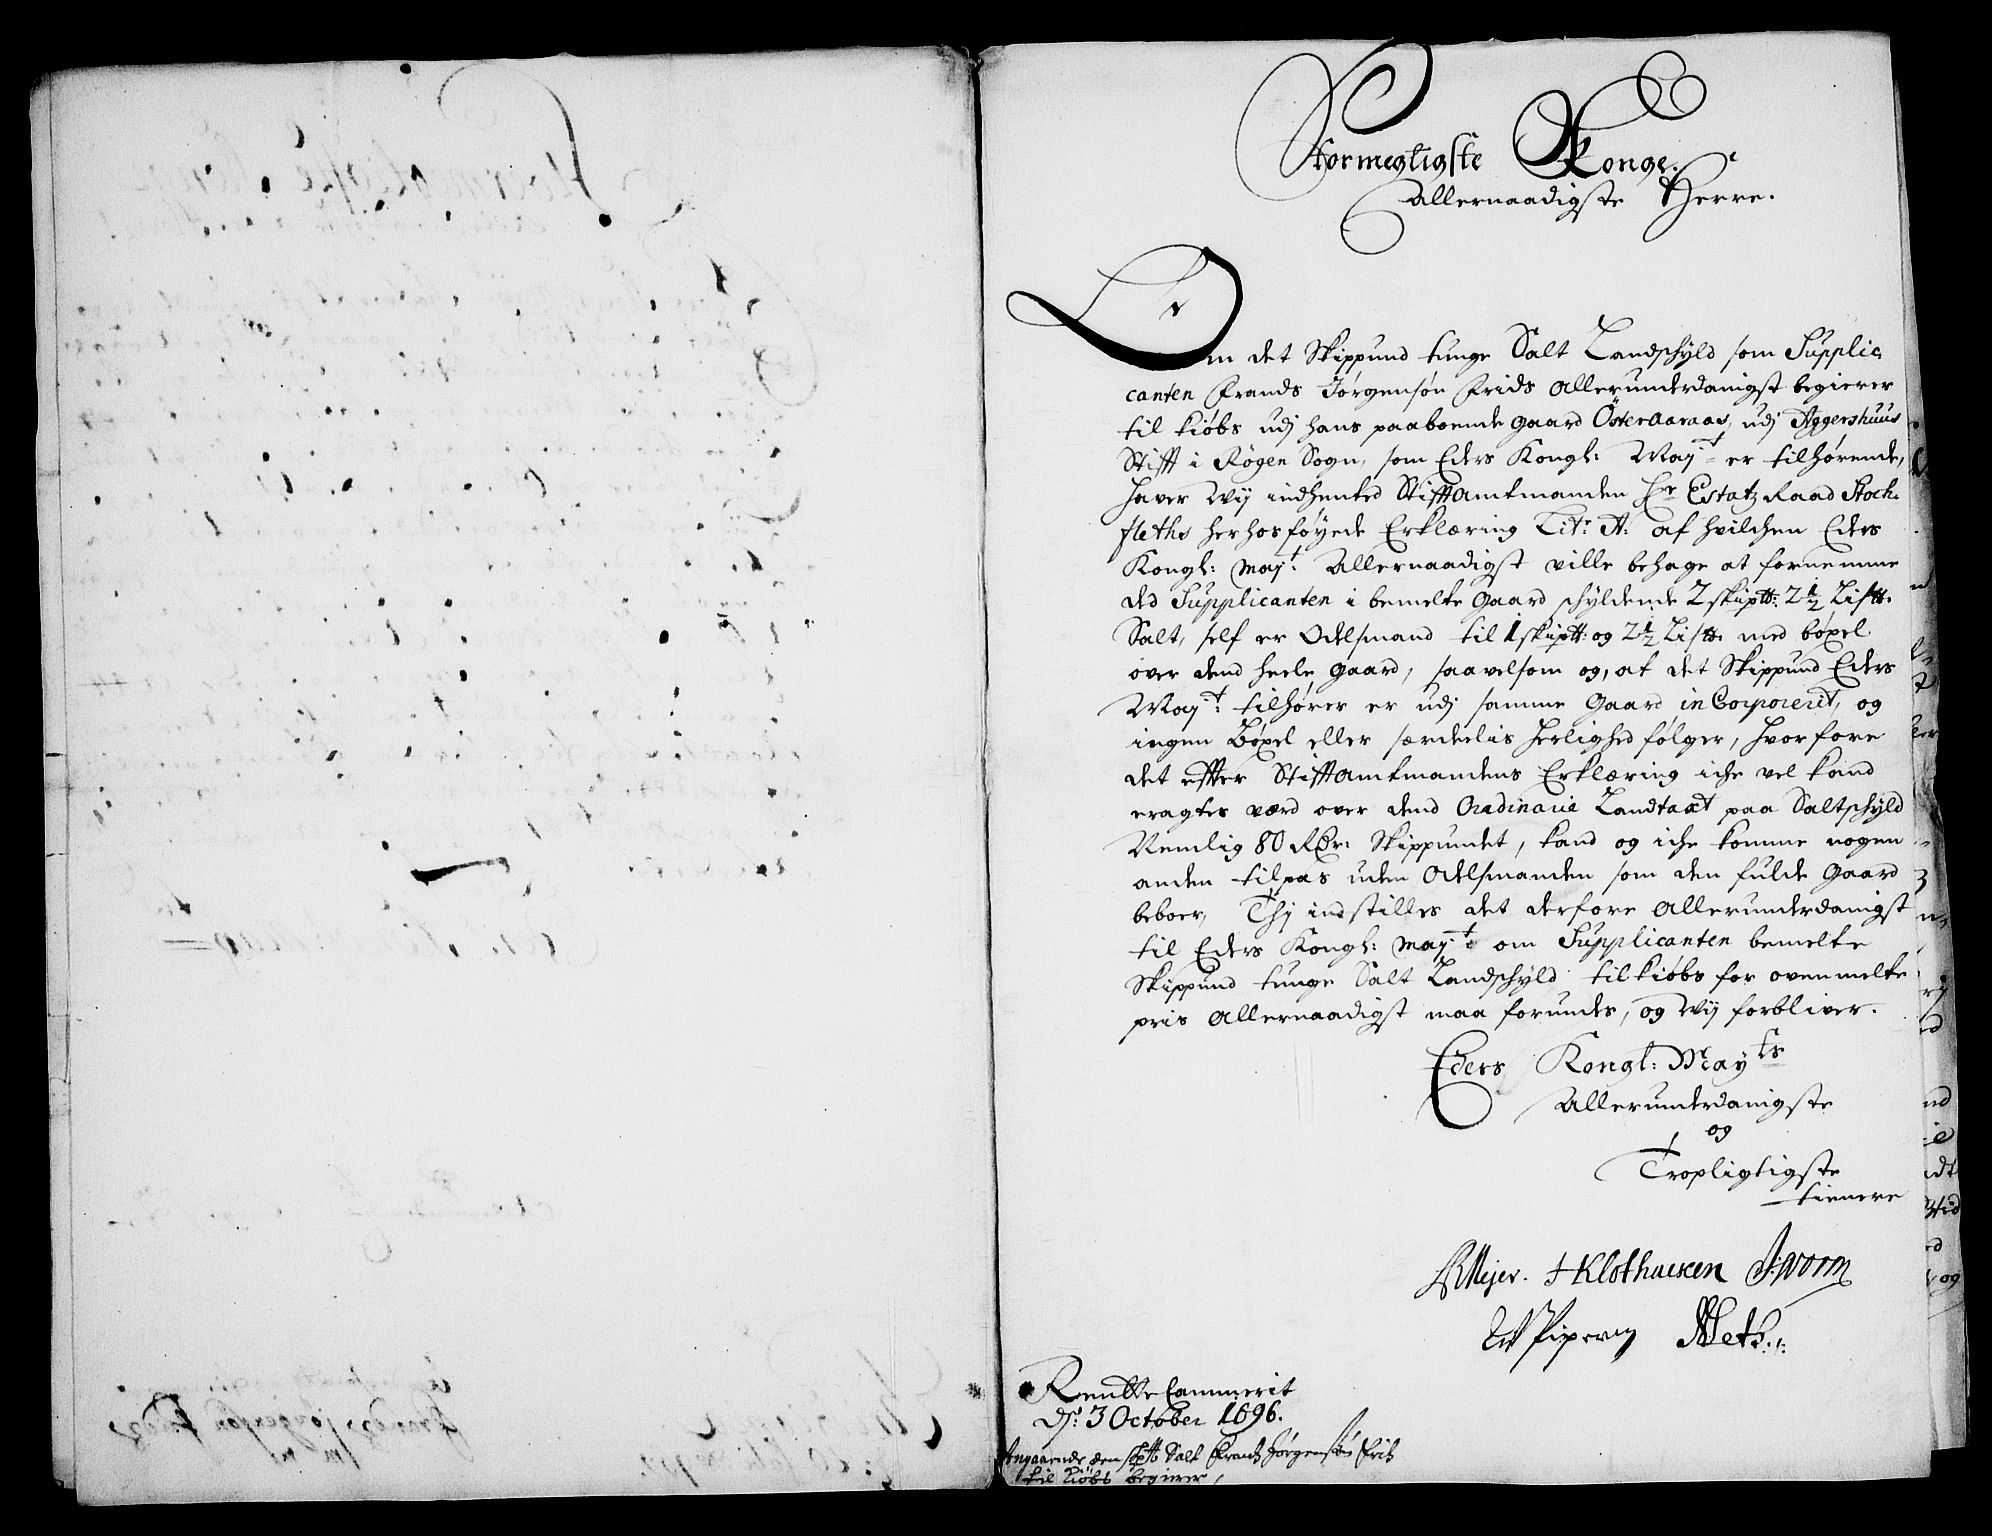 Stormegtigste Konge.
Allernaadigste Herre.
Om det Skippund tunge Salt Landschyld som Supplic
canten Frands Jørgensøn Frids allerunderdanigst begierer
til kiøbs udj hans paaboende gaard Österaaraas, udj Aggershuus
Stifft i Røgen Sogn, som Eders Kongl: Mayt er tilhørende,
hafver Wij indhented Stifftamtmanden Hr Estatz Raad Stock-
fleths herhosføyede Erklæring Litr: A: af hvilchen Eders
Kongl: mayt: Allernaadigst ville behage at fornemme
ded Supplicanten i bemelte gaard schyldende 2 skiptt: 2½ Listt:
Salt, self er Odelsmand til 1 skiptt: og 2½ Listt: med bøxel
över dend heele gaard, saavelsom og, at det Skippund Eders
Mayt: tilhører er udj samme Gaard in Corporerit, og
ingen Bøxel eller særdeelis herlighed følger, hvorfore
det effter Stifftamtmandens Erklæring iche vel kand
eragtes værd over dend Ordinarie Landtaxt paa Saltschyld
Nemlig 80 Rdr: Skippundet, kand og iche komme nogen
anden tilpas uden Odelsmanden som den fulde gaard
beboer, Thj indstilles det derfore allerunderdanigst
til Eders Kongl: mayt: om Supplicanten bemelte
Skippund tunge Salt Landschyld til kiøbs for ovenmelte
pris allernaadigst maa forundes, og Wij forbliver.
Eders Kongl: Mayts
Allerunderdanigste
og
Tropligtigste
tienere
Meijer. Klothacken J: Worm
Piper Metz
RentteCammerit
ds: 3 October 1696.
Angaaende den skptt Salt Frantz Jørgensøn Fritz
til kiøbs begierer,